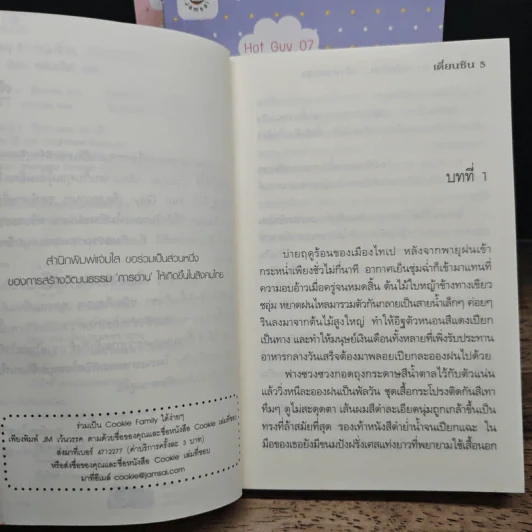 Hot Guy 07
เตี่ยนซิน 5
สำนักพิมพ์แจ่มใส ขอร่วมเป็นส่วนหนึ่ง
ของการสร้างวัฒนธรรม 'การอ่าน' ให้เกิดขึ้นในสังคมไทย
ร่วมเป็น Cookie Family ได้ง่ายๆ
เพียงพิมพ์ JM เว้นวรรค ตามด้วยชื่อของคุณและชื่อหนังสือ Cookie เล่มที่ชอบ
ส่งมาที่เบอร์ 4712277 (ค่าบริการครั้งละ 3 บาท)
หรือส่งชื่อของคุณและชื่อหนังสือ Cookie เล่มที่ชอบ
มาที่อีเมล์ cookie@jamsai.com
บทที่ 1
บ่ายฤดูร้อนของเมืองไทเป หลังจากพายุฝนเข้า
กระหน่ำเพียงชั่วไม่กี่นาที อากาศเย็นชุ่มฉ่ำก็เข้ามาแทนที่
ความอบอ้าวเมื่อครู่จนหมดสิ้น ต้นไม้ใบหญ้าข้างทางเขียว
ชอุ่ม หยาดฝนไหลมารวมตัวกันกลายเป็นสายน้ำเล็กๆ ค่อยๆ
รินลงมาจากต้นไม้สูงใหญ่ ทำให้อิฐตัวหนอนสีแดงเปียก
เป็นทาง และทำให้มนุษย์เงินเดือนทั้งหลายที่เพิ่งรับประทาน
อาหารกลางวันเสร็จต้องมาพลอยเปียกละอองฝนไปด้วย
ฟางซวงซวงกอดถุงกระดาษสีน้ำตาลไว้กับตัวแน่น
แล้ววิ่งหนีละอองฝนเป็นพัลวัน ชุดเสื้อกระโปรงติดกันสีเทา
ทึมๆ ดูไม่สะดุดตา เส้นผมสีดำละเอียดนุ่มถูกเกล้าขึ้นเป็น
ทรงที่ล้าสมัยที่สุด รองเท้าหนังสีดำย่ำน้ำจนเปียกแฉะ ใน
มือของเธอยังมีขนมปังฝรั่งเศสแท่งยาวที่พยายามใช้เสื้อนอก